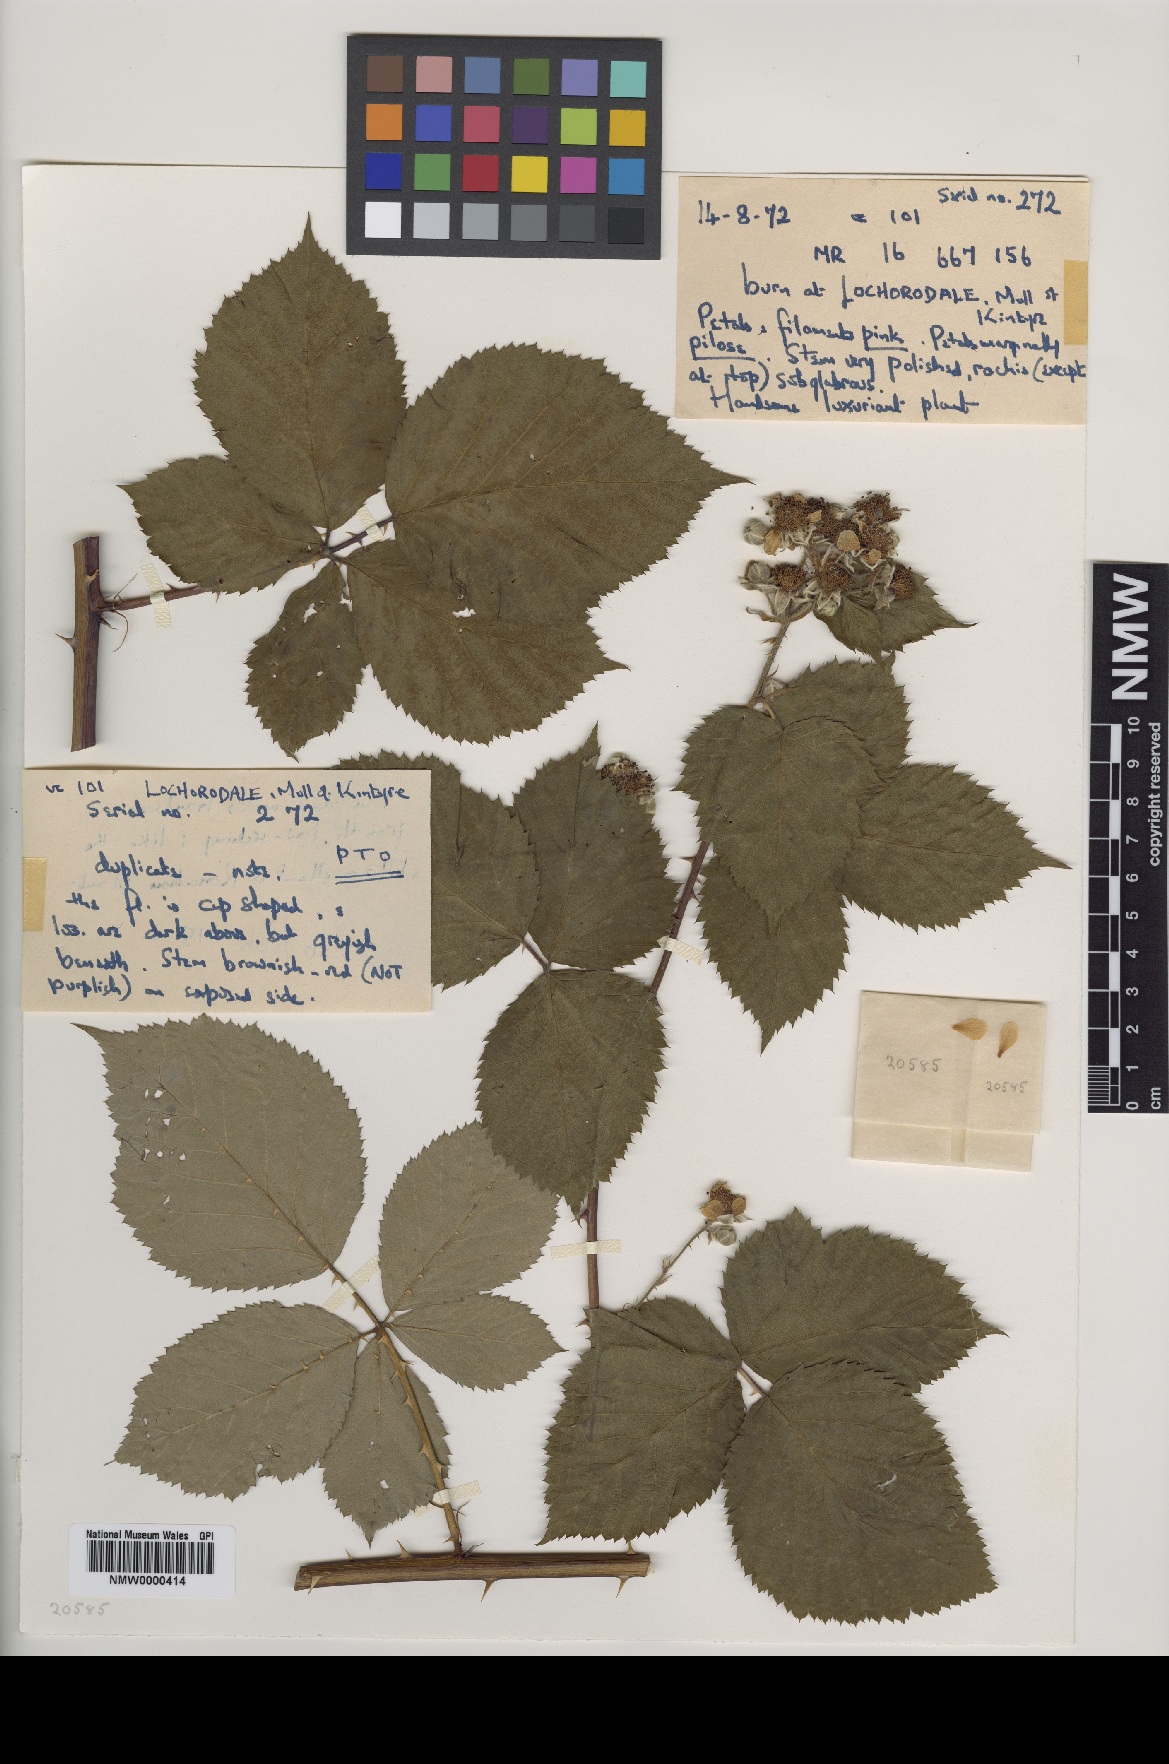 Serial no. 272
14-8-72 vc 101
MR 16 667 156
burn at LOCHORODALE, Mull of
Kintyre
Petals & filaments pink. Petals marginally
pilose. Stem very polished, rachis (except
at top) subglabrous.
Handsome luxuriant plant
vc 101 LOCHORODALE, Mull of Kintyre
Serial no. 272
duplicate - note, PTO
the fl. is cup shaped, &
lvs. are dark above, but greyish
beneath. Stem brownish-red (NOT
purplish) on exposed side.
20585
20585
NMW
0 1 2 3 4 5 6 7 8 9 10
cm
copyright reserved
National Museum Wales QPI
NMW0000414
20585